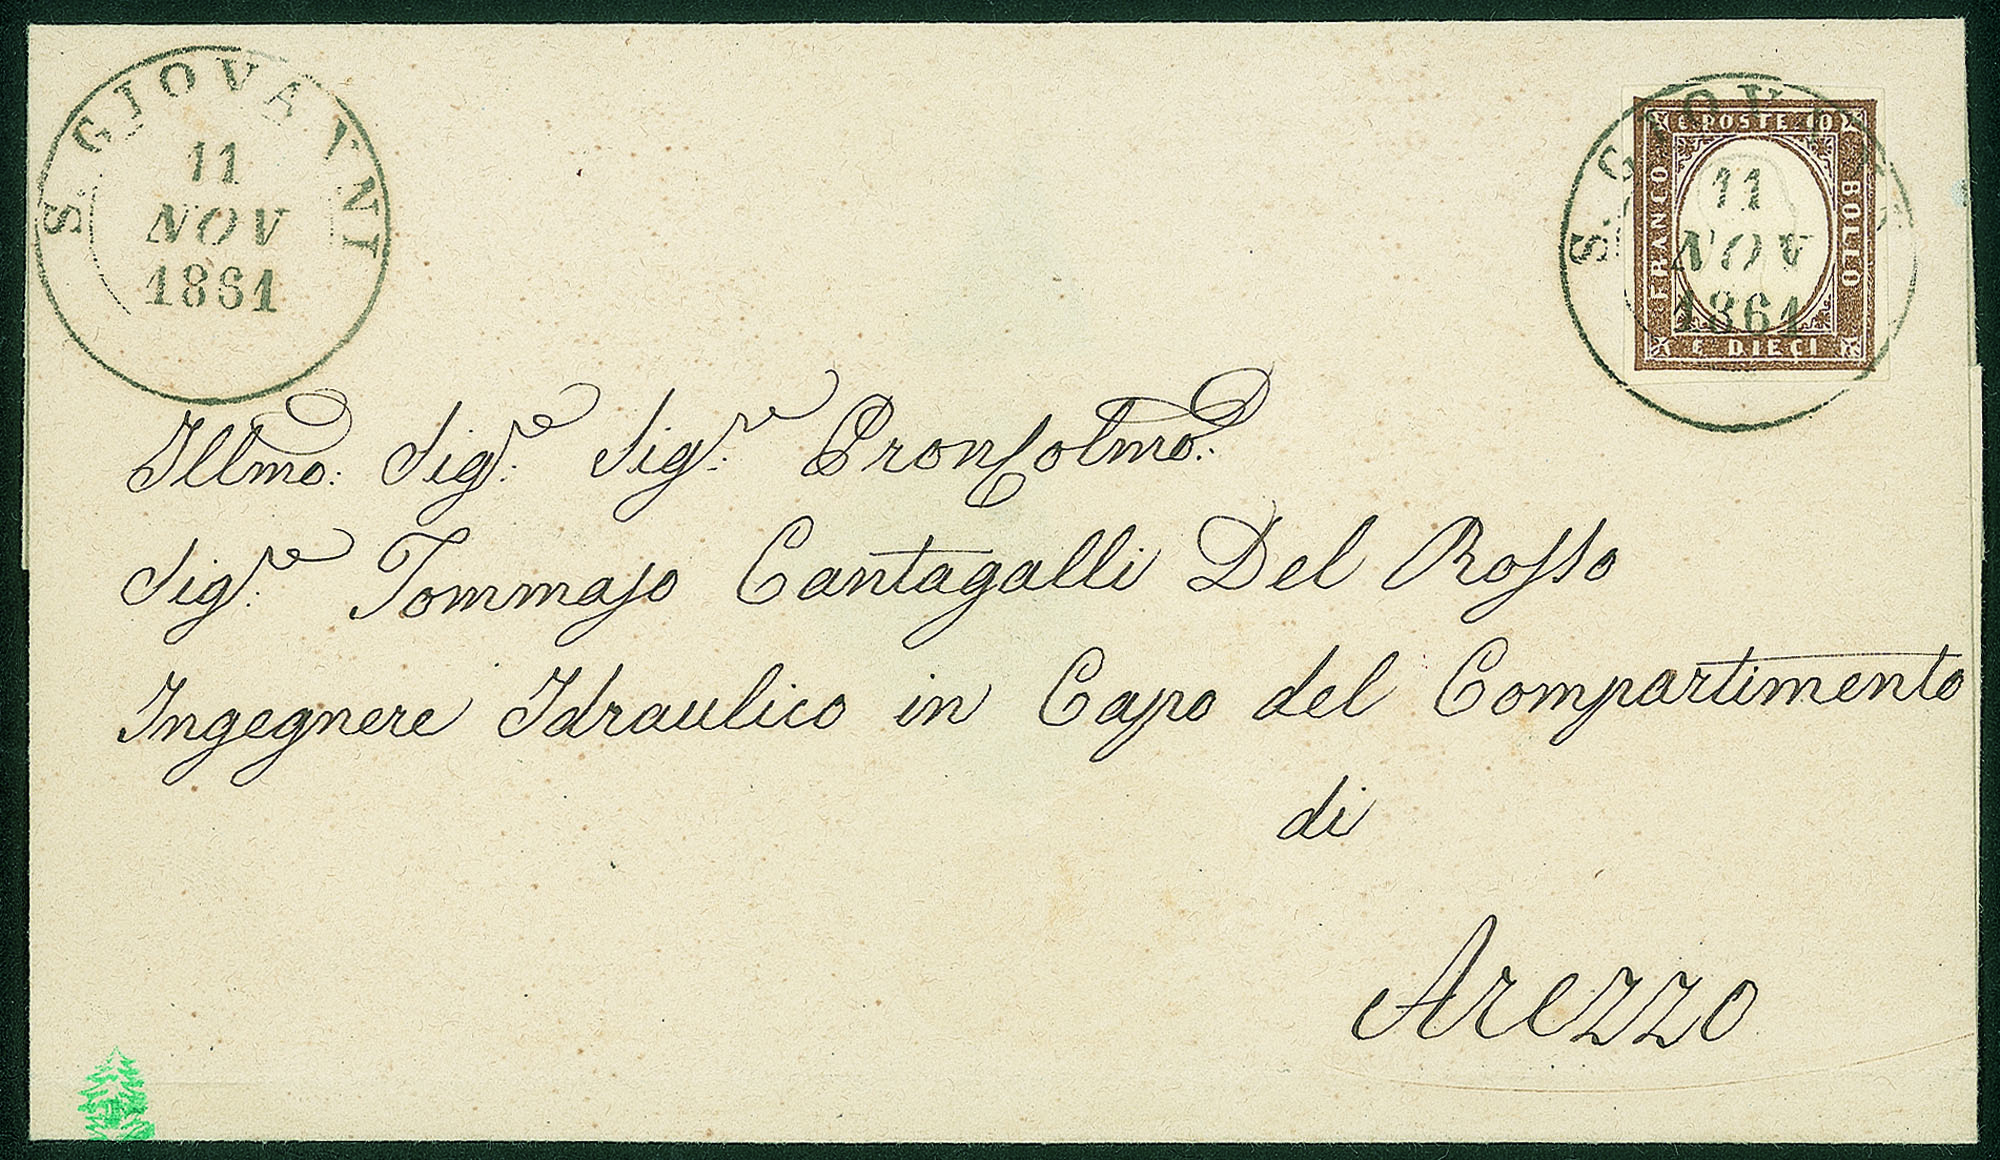 S. GIOVANNI
11
NOV
1861
S. GIOV
11
NOV
1861
C. POSTE 10
FRANCO
BOLLO
C. DIECI
Illmo. Sigre. Sigre. Pronỹolmo.
Sigre. Tommaso Cantagalli Del Rosso
Ingegnere Idraulico in Capo del Compartimento
di
Arezzo